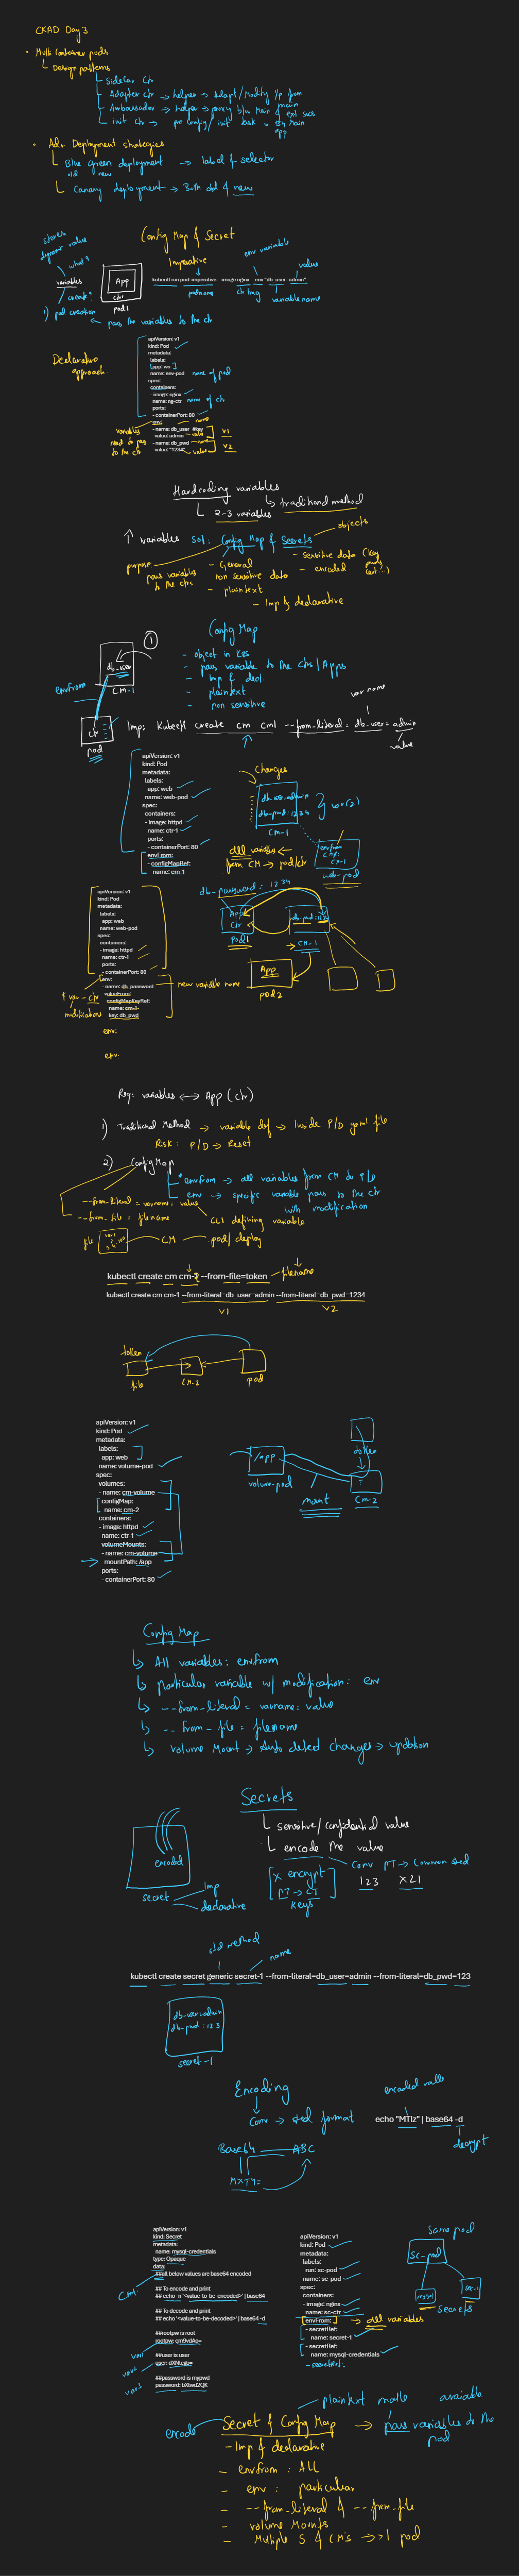 CKAD Day 3
Multi Container pods
Design patterns
Sidecar ctr
Adapter ctr → helper → adapt/Modify I/p from main
Ambassador → helper → proxy b/w main & ext svcs
init ctr → pre config/init task → main app
Adv Deployment strategies
Blue green deployment → label & selector
old new
Canary deployment → Both old & new
Config Map & Secret
stores dynamic value
what?
variables
create?
1) pod creation
App
ctr
pod1
Imperative
env variable
value
kubectl run pod-imperative --image nginx --env "db_user=admin"
podname
ctr img
variable name
pass the variables to the ctr
Declarative approach
apiVersion: v1
kind: Pod
metadata:
labels:
name: env-pod
name of pod
spec:
containers:
- image: nginx
name: ng-ctr
name of ctr
ports:
- containerPort: 80
env:
- name: db_user #key
name
value: admin
value
V1
- name: db_pwd
name
value: "1234"
value
V2
variables need to pass to the ctr
Hardcoding variables
traditional method
2-3 variables
objects
↑ variables sol: Config Map & Secrets
purpose:
pass variables to the ctrs
- General
non sensitive data
- plaintext
- sensitive data (key
- encoded
- Imp & declarative
Config Map
- object in K8s
- pass variable to the ctrs/Apps
- Imp & decl
- plaintext
- non sensitive
1
db-user
CM-1
envfrom
ctr
pod
var name
Imp: Kubectl create cm cm1 --from-literal = db-user = admin
value
apiVersion: v1
kind: Pod
metadata:
labels:
app: web
name: web-pod
spec:
containers:
- image: httpd
name: ctr-1
ports:
- containerPort: 80
envFrom:
- configMapRef:
name: cm-1
Changes
db-user=admin
db-pwd: 1234
var(2)
CM-1
all variables
from CM → pod/ctr
envfrom
CM-1
web-pod
db-password = 1234
App
ctr
pod1
db-pwd:1234
CM-1
App
pod2
apiVersion: v1
kind: Pod
metadata:
labels:
app: web
name: web-pod
spec:
containers:
- image: httpd
name: ctr-1
ports:
- containerPort: 80
env:
- name: db_password
new variable name
valueFrom:
configMapKeyRef:
name: cm-1
key: db_pwd
var - ctr
modification
env:
env:
Req: variables ↔ App (ctr)
1) Traditional Method → variable def → Inside P/D yaml file
Risk: P/D → Reset
2) ConfigMap
envfrom → all variables from CM to P/D
env → specific variable pass to the ctr with modification
--from-literal = varname = value
--from-file = filename
CLI defining variable
file
CM
pod/deploy
kubectl create cm cm-2 --from-file=token
filename
kubectl create cm cm-1 --from-literal=db_user=admin --from-literal=db_pwd=1234
V1
V2
token
file
CM-2
pod
apiVersion: v1
kind: Pod
metadata:
labels:
app: web
name: volume-pod
spec:
volumes:
- name: cm-volume
configMap:
name: cm-2
containers:
- image: httpd
name: ctr-1
volumeMounts:
- name: cm-volume
mountPath: /app
ports:
- containerPort: 80
/app
volume-pod
mount
token
CM-2
Config Map
All variables: envfrom
particular variable w/ modification: env
--from-literal = varname = value
--from-file = filename
volume Mount → Auto detect changes → updation
Secrets
sensitive/confidential value
encode the value
encoded
secret
Imp
declarative
X encrypt
PT → CT
keys
Conv PT → Common std
123
XZ1
std method
name
kubectl create secret generic secret-1 --from-literal=db_user=admin --from-literal=db_pwd=123
db-user=admin
db-pwd: 123
secret-1
Encoding
Conv → std format
Base64
ABC
encoded value
echo "MTIz" | base64 -d
decrypt
apiVersion: v1
kind: Secret
metadata:
name: mysql-credentials
type: Opaque
data:
##all below values are base64 encoded
## To encode and print
## echo -n '<value-to-be-encoded>' | base64
## To decode and print
## echo '<value-to-be-decoded>' | base64 -d
##rootpw is root
rootpw: cm9vdAo=
##user is user
user: dXNlcgo=
##password is mypwd
password: bXlwd2QK
var1
var2
var3
apiVersion: v1
kind: Pod
metadata:
labels:
run: sc-pod
name: sc-pod
spec:
containers:
- image: nginx
name: sc-ctr
envFrom:
all variables
- secretRef:
name: secret-1
- secretRef:
name: mysql-credentials
- secretRef:
same pod
sc-pod
mysql
sec-1
secrets
encode
plaintext
Secret & Config Map → pass variables to the pod
- Imp & declarative
- envfrom : All
- env : particular
- --from-literal & --from-file
- volume Mounts
- Multiple S & CM's → 1 pod